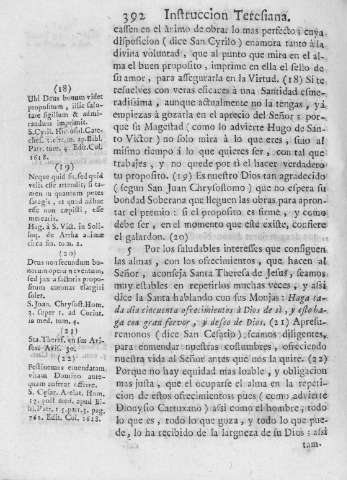 392 Instruccion Teresiana.
cassen en el animo de obrar lo mas perfecto; cuya
disposicion (dice San Cyrilo) enamora tanto à la
divina voluntad, que al punto que mira en el al-
ma el buen proposito, imprime en ella el sello de
su amor, para assegurarla en la Virtud. (18) Si te
resuelves con veras eficaces à una Santidad esme-
radissima, aunque actualmente no la tengas, yà
empiezas à gozarla en el aprecio del Señor; por-
que su Magestad (como lo advierte Hugo de San-
to Victor) no solo mira à lo que eres, sino al
mismo tiempo à lo que quieres ser, con tal que
trabajes, y no quede por ti el hacer verdadero
tu proposito. (19) Es nuestro Dios tan agradecido
(segun San Juan Chrysostomo) que no espera su
bondad Soberana que lleguen las obras para apron-
tar el premio: si el proposito es firme, y como
debe ser, en el momento que este existe, confiere
el galardon. (20)
5 Por los saludables interesses que consiguen
las almas, con los ofrecimientos, que hacen al
Señor, aconseja Santa Theresa de Jesus, seamos
muy estables en repetirlos muchas veces, y assi
dice la Santa hablando con sus Monjas: Haga ca-
da dia cincuenta ofrecimientos à Dios de sì, y esto ha-
ga con gran fervor, y deseo de Dios. (21) Apresu-
remonos (dice San Cesario) seamos diligentes,
para enmendar nuestras costumbres, ofreciendo
nuestra vida al Señor antes que nos la quite. (22)
Porque no hay equidad mas loable, y obligacion
mas justa, que el ocuparse el alma en la repeti-
cion de estos ofrecimientos pues (como advierte
Dionysio Cartuxano) assi como el hombre, todo
lo que es, todo lo que goza, y todo lo que pue-
de, lo ha recibido de la largueza de su Dios: assi
tam-
(18)
Ubi Deus bonum videt
propositum, illic salu-
tare sigillum & admi-
randum imprimit.
S. Cyril. Hierosol. Cate-
Patr. tom. 4. Edit. Col.
1618.
(19)
Neque quid sis, sed quid
velis esse attendit, si ta-
men in quantum potes
satagis, ut quod adhuc
esse non cœpisti, esse
merearis.
Hug. à S. Vict. in Soli-
loq. de Arrha animæ
circa fin. tom. 2.
(20)
Deus non secundum bo-
norum operum eventum,
sed jux. a factoris propo-
situm coronas elargiri
solet.
S. Joan. Chrysost. Hom.
(21)
Sta. Theres. en sus Avi-
sos Avis. 30.
(22)
Festinemus emendatam
vitam Domino ante-
quam auferat offerre.
S. Cesar. Arelat. Hom.
Edit. Col. 1618.